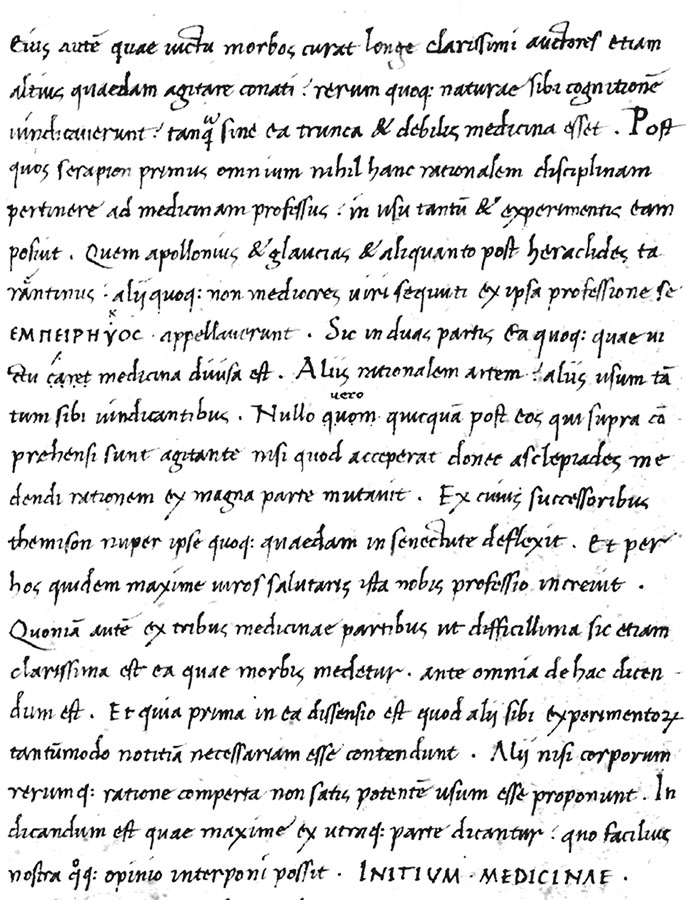 Eius autē quae uictu morbos curat longe clarissimi auctores etiam
altius quaedam agitare conati : rerum quoq: naturae sibi cognitionē
uindicauerunt : tanq̄ sine ea trunca & debilis medicina esset . Post
quos serapion primus omnium nihil hanc rationalem disciplinam
pertinere ad medicinam professus : in usu tantū & experimentis eam
posuit . Quem apollonius & glaucias & aliquanto post heraclides ta
rantinus : alij quoq: non mediocres uiri sequuti ex ipsa professione se
ΕΜΠΕΙΡΗΥΟC · appellauerunt . Sic in duas partis ea quoq: quae ui
ctu caret medicina diuisa est . Aliis rationalem artem : aliis usum tā
tum sibi uindicantibus . Nullo quom uero quicquā post eos qui supra cō
prehensi sunt agitante nisi quod acceperat donec asclepiades me
dendi rationem ex magna parte mutauit . Ex cuius successoribus
themison nuper ipse quoq: quaedam in senectute deflexit . Et per
hos quidem maxime uiros salutaris ista nobis professio increuit .
Quoniā autē ex tribus medicinae partibus ut difficillima sic etiam
clarissima est ea quae morbis medetur · ante omnia de hac dicen
dum est . Et quia prima in ea dissensio est quod alij sibi experimentoꝝ
tantūmodo notitiā necessariam esse contendunt . Alij nisi corporum
rerumq: ratione comperta non satis potentē usum esse proponunt . In
dicandum est quae maxime ex utraq: parte dicantur : quo facilius
nostra q̊q: opinio interponi possit . INITIVM · MEDICINAE .